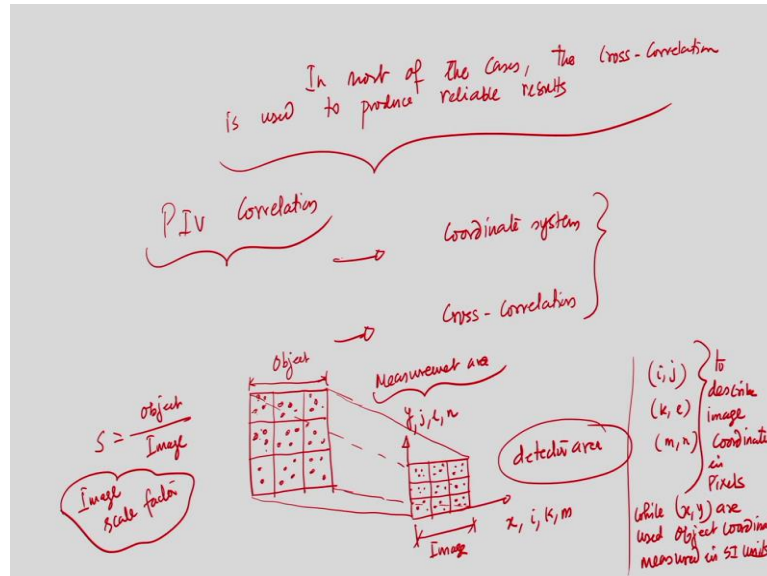 In most of the cases, the Cross-Correlation
is used to produce reliable results
PIV Correlation
Coordinate system
Cross-Correlation
Object
Measurement are
S = Object / Image
Image
scale factor
y, j, l, n
detector area
x, i, k, m
Image
(i, j)
(k, l)
(m, n)
to
describe
image
Coordinate
in
Pixels
while (x, y) are
used object coordina
measured in SI units